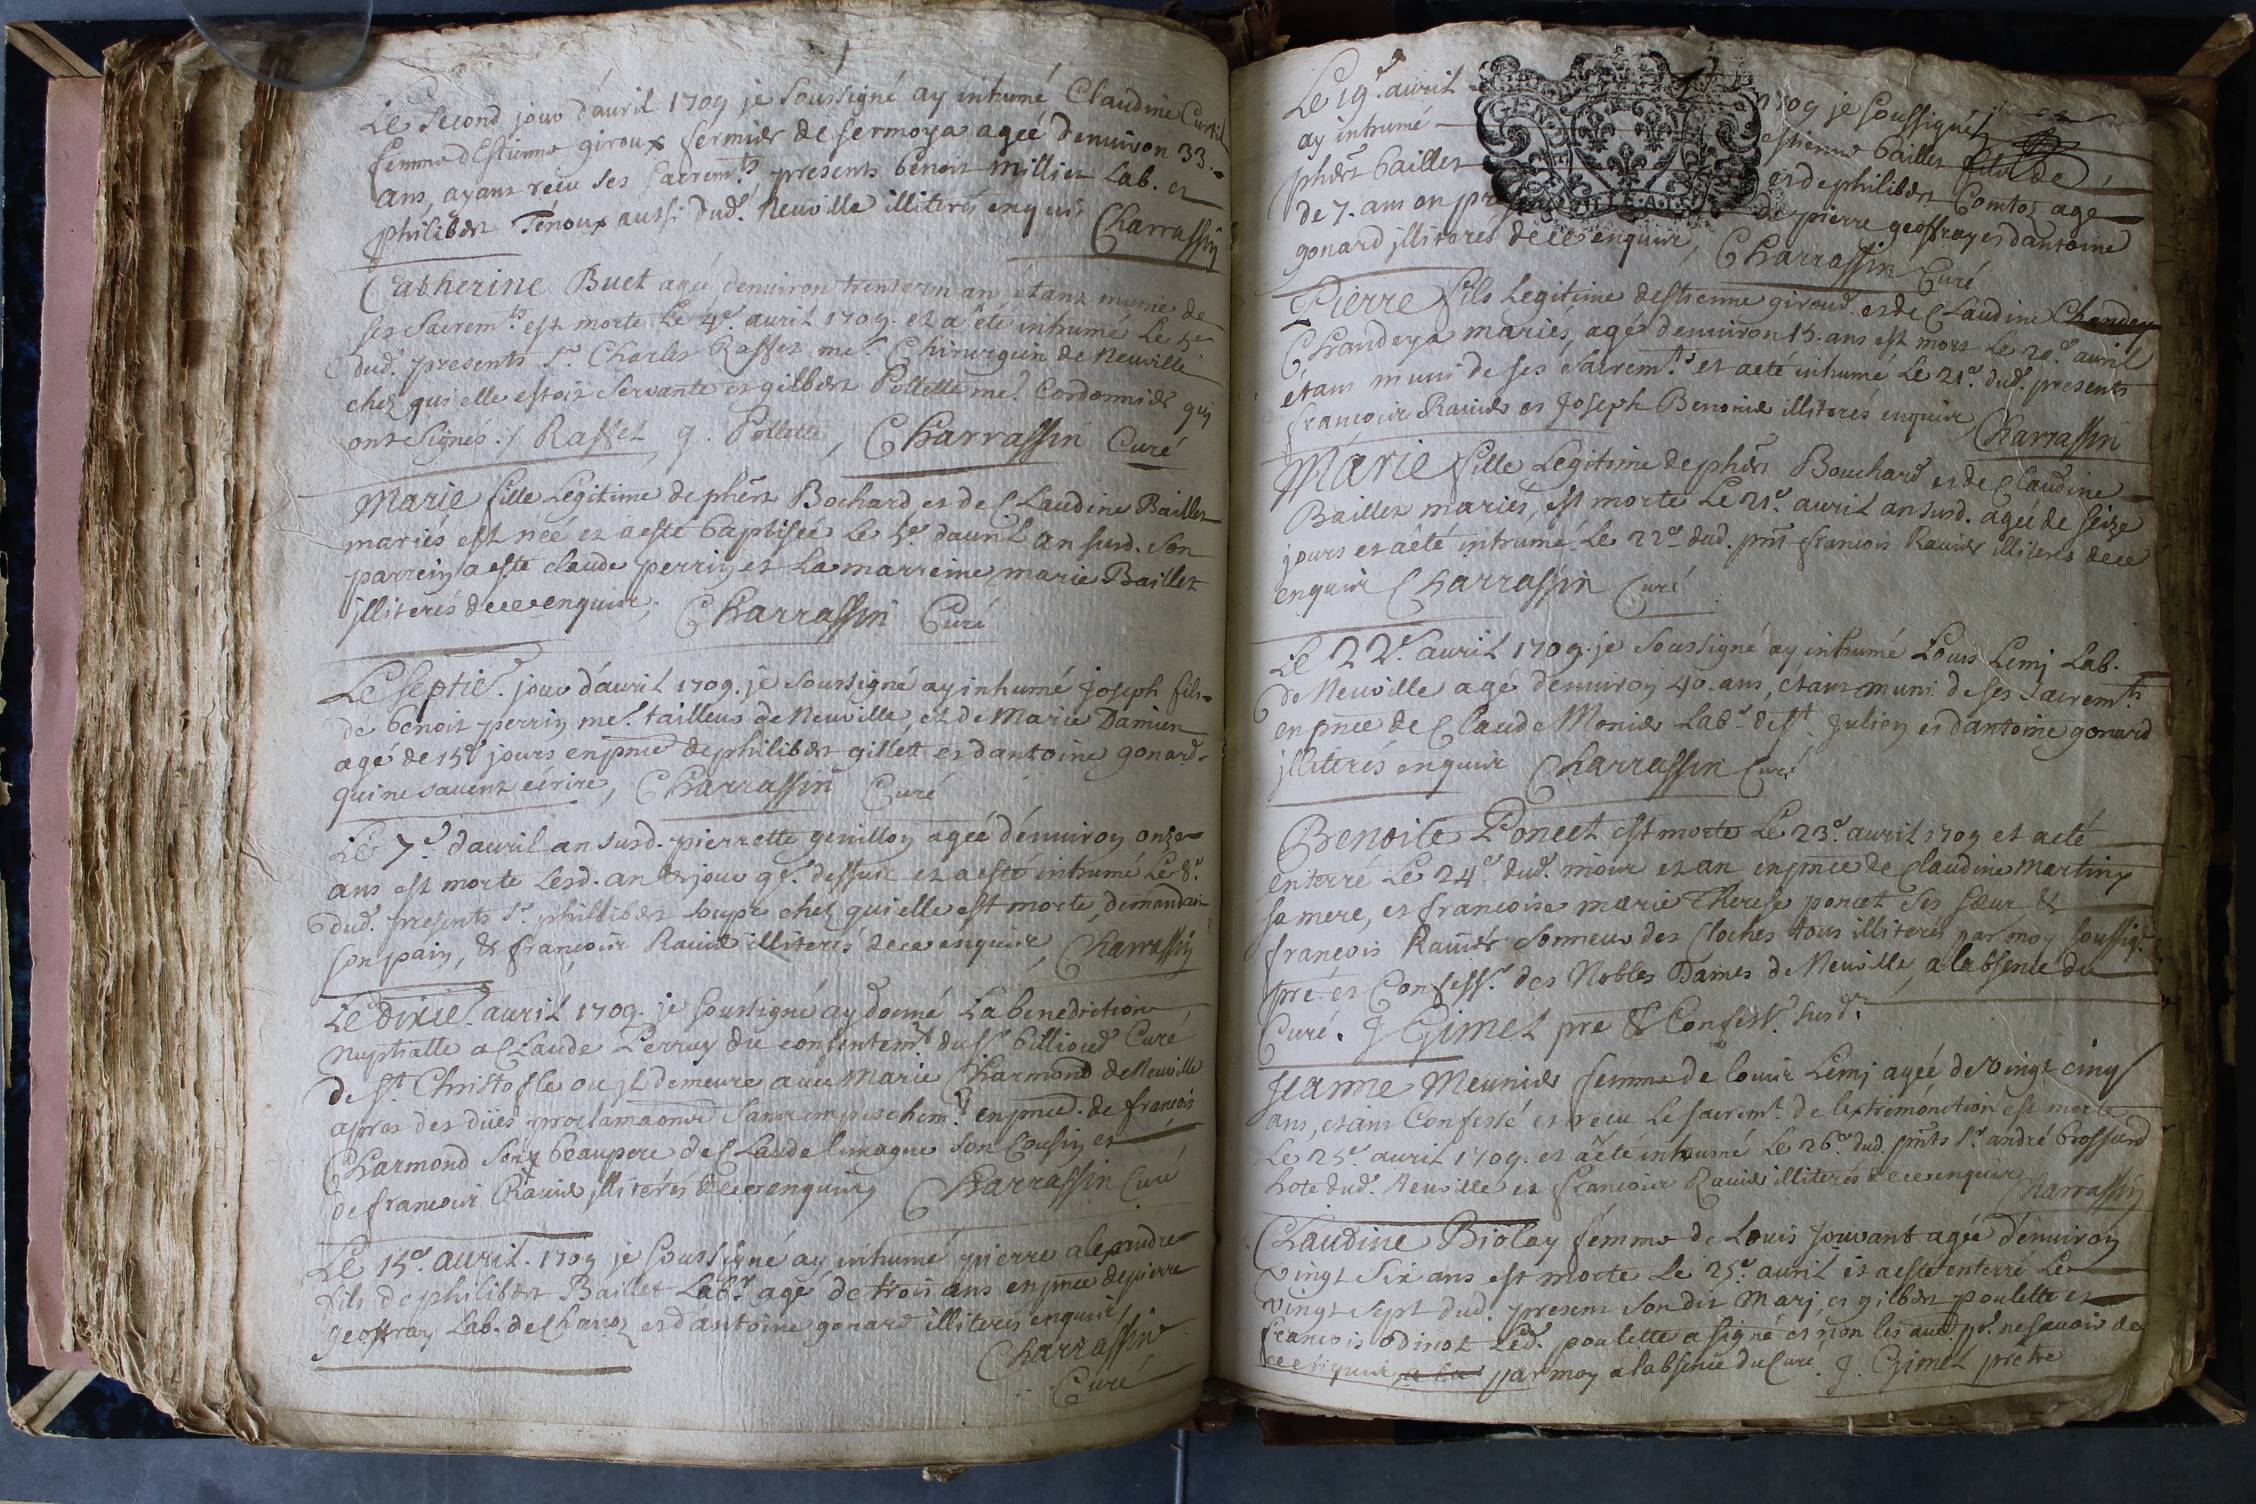 Le second jour d'auril 1709 je soussigné ay inhumé Claudine Curtil
femme d'Estienne giroux fermier de sermoya ageé d'enuiron 33.
ans, ayans reçu ses sacrem.ts presents benoit millier Lab. et
philibert Ténoux aussi dud. Neuville illiterés enquis Charrassin
Catherine Buet ageé d'enuiron trente un an, étant munie de
ses sacrem.ts est morte Le 4e. auril 1709. et a été inhumé Le 5e
dud. presents Sr. Charles Raffet me. Chirurgien de Neuville
chez qui elle estoit servante et gilbert Pollette me. Cordonnier qui
ont signés./ Raffet g. Pollette, Charrassin Curé
Marie fille Legitime de phert Bochard et de Claudine Baillet
mariés est née et a esté baptiseé Le 5e. d'auril an susd. son
parrein a esté claude perrin et La marreine marie Baillet
illiterés de ce enquis, Charrassin Curé
Le septie. jour d'auril 1709. je soussigné ay inhumé joseph fils
de benoit perrin me. tailleur de Neuville et de Marie Damien
agé de 15e jours en pnce de philibert gillett et d'antoine gonard
qui ne sauent ecrire, Charrassin Curé
Le 7e. d'auril an susd. pierrette genillon ageé d'enuiron onze
ans est morte Lesd. an & jour qe. dessus et a esté inhumé Le 8e.
dud. presents Sr. phillibert soupe chez qui elle est morte, demandant
son pain, & françois Rauier illiterés de ce enquis, Charrassin
Le dixie. auril 1709. je soussigné ay donné La benediction
nuptialle a Claude Perruy du consentem.t du Sr. billioud Curé
de St. Christofle ou jl demeure auec Marie Charmond de Neuville
apres des diies proclamaons sans empeschem.t en pnce. de françois
Charmond son beaupere de Claude limagne son Cousin et
de francois Rauier jlliterés de ce enquis, Charrassin Curé
Le 15e. auril. 1709 je soussigné ay inhumé pierre alexandre
fils de philibert Baillet Labr. agé de trois ans en pnce de pierre
geoffray Lab. de Chanoz et d'antoine gonard illiterés enquis,
Charrassin
Curé
Le 19e. auril 1709 je soussigné
ay inhumé estienne baillet fils de
phert baillet et de philiberte Comtoz agé
de 7. ans en de pierre geoffray et d'antoine
gonard jlliterés de ce enquis, Charrassin Curé
Pierre fils Legitime d'estienne giroud et de Claudine Chandey
Chandeya mariés, agé d'enuiron 15. ans est mort Le 20e. auril
étans muni de ses sacrem.ts et a eté inhumé Le 21e. dud. presents
francois Rauier et Joseph Benonier illiterés enquis Charrassin
Marie fille Legitime de phert Bouchard et de Claudine
Baillet mariés, est morte Le 21e. auril an susd. ageé de seize
jours et a été inhumé Le 22e dud. pnt francois Rauier illiterés de ce
enquis Charrassin Curé
Le 22e. auril 1709. je soussigné ay inhumé Louis Lemj Lab.
de Neuville agé d'enuiron 40. ans, etans muni de ses sacrem.ts
en pnce de Claude Monier Labr. de St. Julien et d'antoine gonard
jlliterés enquis Charrassin Curé
Benoite Poncet est morte Le 23e. auril 1709 et a eté
enterré Le 24e. dud. mois et an en pnce de Claudine Martin
sa mere, et francoise marie Therese poncet ses sœur &
françois Rauier sonneur des Cloches tous illiterés par moy soussigé
pre. et Confessr. des Nobles Dames de Neuville, a labsence du
Curé. J Gimet pre & Confessr. susd.
Jeanne Meunier femme de louis Lemj ageé de vingt cinq
ans, etans Confessé et recu le sacrem.t de lextremonction est morte
Le 25e. auril 1709. et a été inhumé Le 26e dud. pnts Sr. andré brossard
hote dud. Neuville et francois Rauier illiterés de ce enquis, Charrassin
Claudine Biolay femme de Louis Jouvant ageé d'enuiron
vingt six ans est morte Le 25e. auril et a esté enterré Le
vingt sept dud. present son dit Marj et gilbert poulette et
francois bodinot Led. poulette a signé et non les aues pr. ne sauoir de
ce enquis a la par moy a labsence du Curé. J. Gimet prêtre